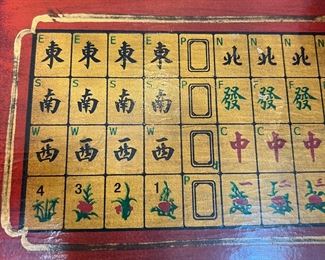 E 東 E 東 E 東 E 東 P N 北 N 北 N 北 N
S 南 S 南 S 南 S 南 F 發 F 發 F 發
W 西 W 西 W 西 W 西 C 中 C 中 C 中
4 3 2 1 P 一 二 三